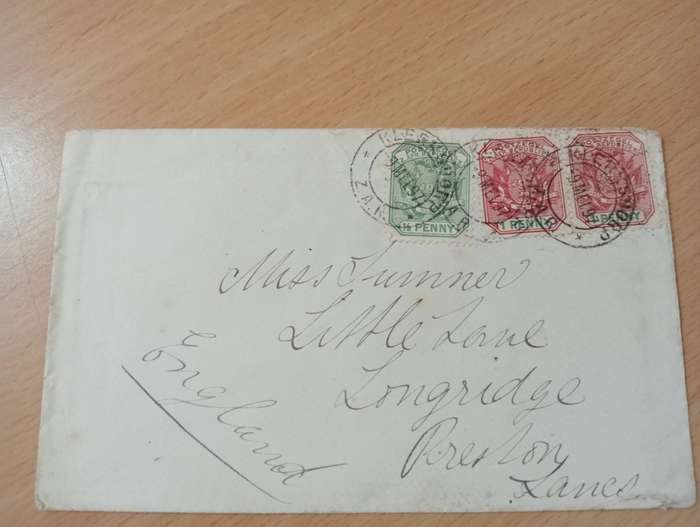 KLERKSDORP
Z.A.R.
½ PENNY
1 PENNY
1 PENNY
Miss Sumner
Little Lane
Longridge
Preston
Lancs
England